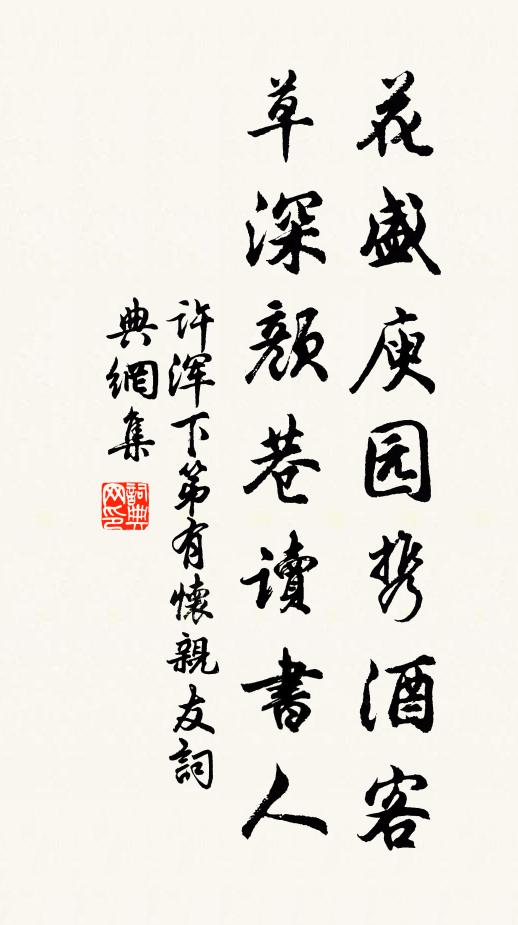 花盛庾园携酒客
草深颜巷读書人
许渾下第有懷親友詞
典網集
詞典
网印